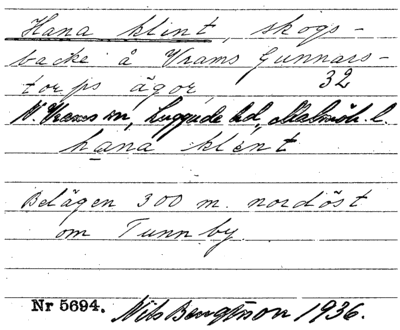 Hana klint, skogs-
backe å Vrams Gunnars-
torps ägor, 32
N. Vrams sn, Luggude hd, Malmöh. l.
hana klent
Belägen 300 m. nordöst
om Tunnby.
Nr 5694. Nils Bengtsson 1936.